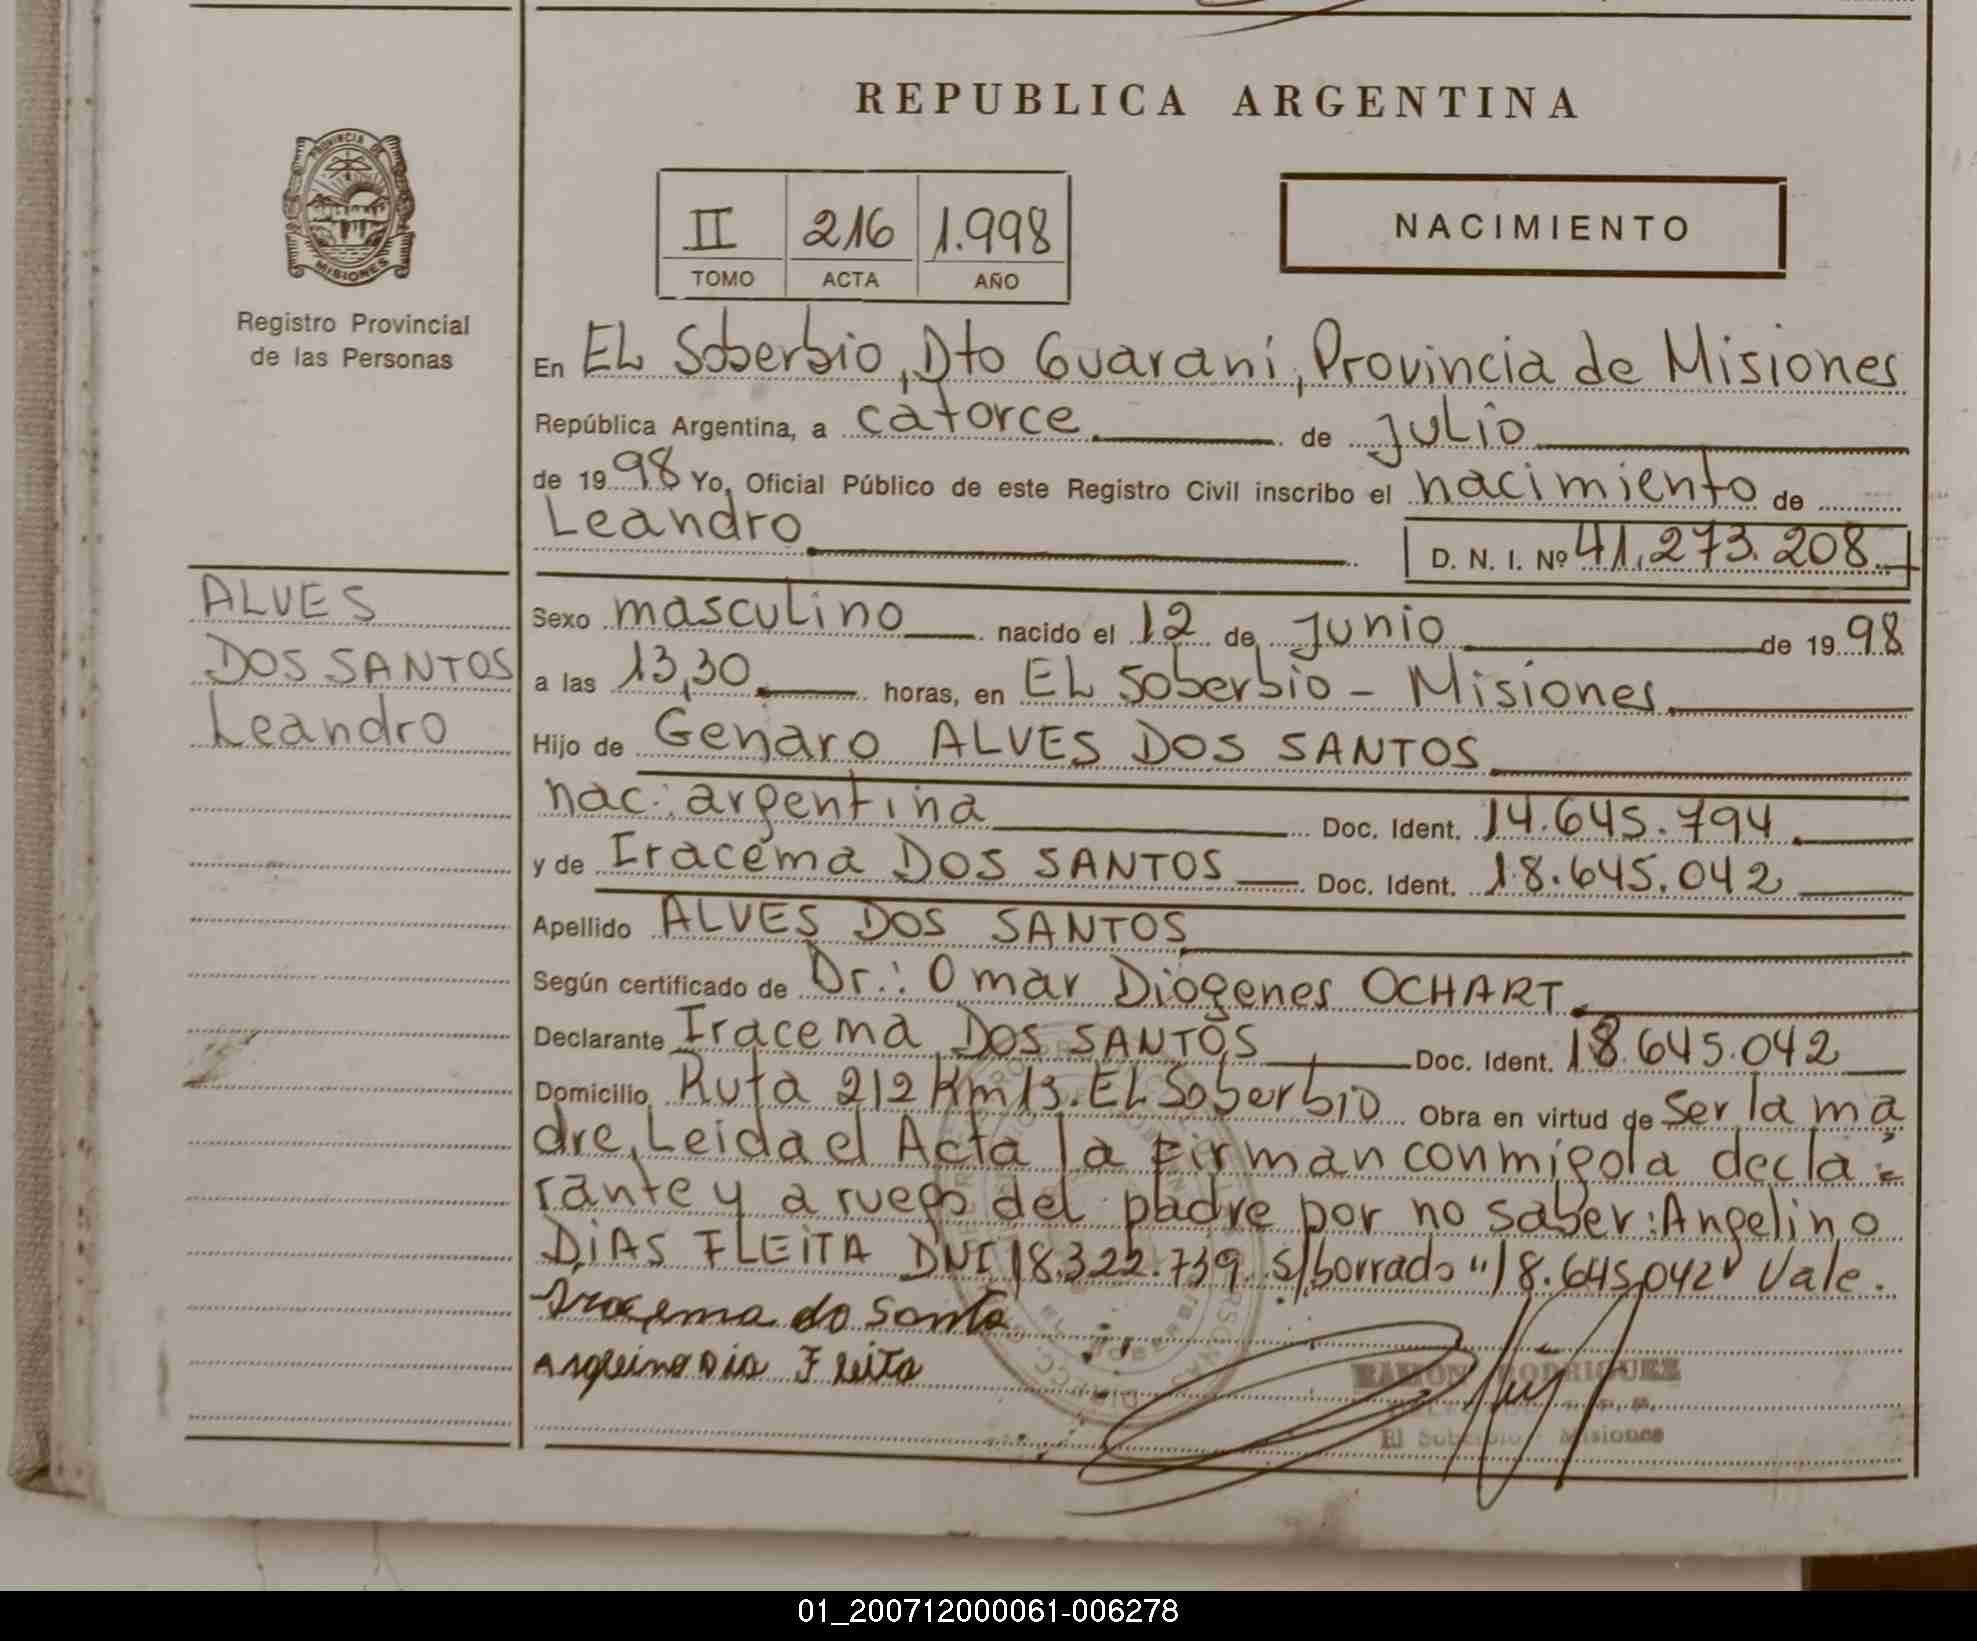 REPUBLICA ARGENTINA
PROVINCIA DE
MISIONES
Registro Provincial
de las Personas
II 216 1.998
TOMO ACTA AÑO
NACIMIENTO
En EL Soberbio, Dto Guaraní, Provincia de Misiones
República Argentina, a catorce de Julio
de 1998 Yo, Oficial Público de este Registro Civil inscribo el nacimiento de
Leandro D. N. I. Nº 41.273.208.
ALVES
DOS SANTOS
Leandro
Sexo masculino nacido el 12 de Junio de 1998
a las 13,30 horas, en EL Soberbio - Misiones
Hijo de Genaro ALVES DOS SANTOS
nac: argentina Doc. Ident. 14.645.794
y de Iracema DOS SANTOS Doc. Ident. 18.645.042
Apellido ALVES DOS SANTOS
Según certificado de Dr.: Omar Diógenes OCHART
Declarante Iracema DOS SANTOS Doc. Ident. 18.645.042
Domicilio Ruta 212 Km 13. EL Soberbio Obra en virtud de Ser la ma
dre, Leida el Acta la Firman conmigo la decla=
rante y a ruego del padre por no saber: Angelino
DiAS FLEiTA DNI 18.322.739. s/borrado "18.645.042" Vale.
Iracema do Santo
Angelino Dia Fleita
RAMON RODRIGUEZ
El Soberbio - Misiones
01_200712000061-006278